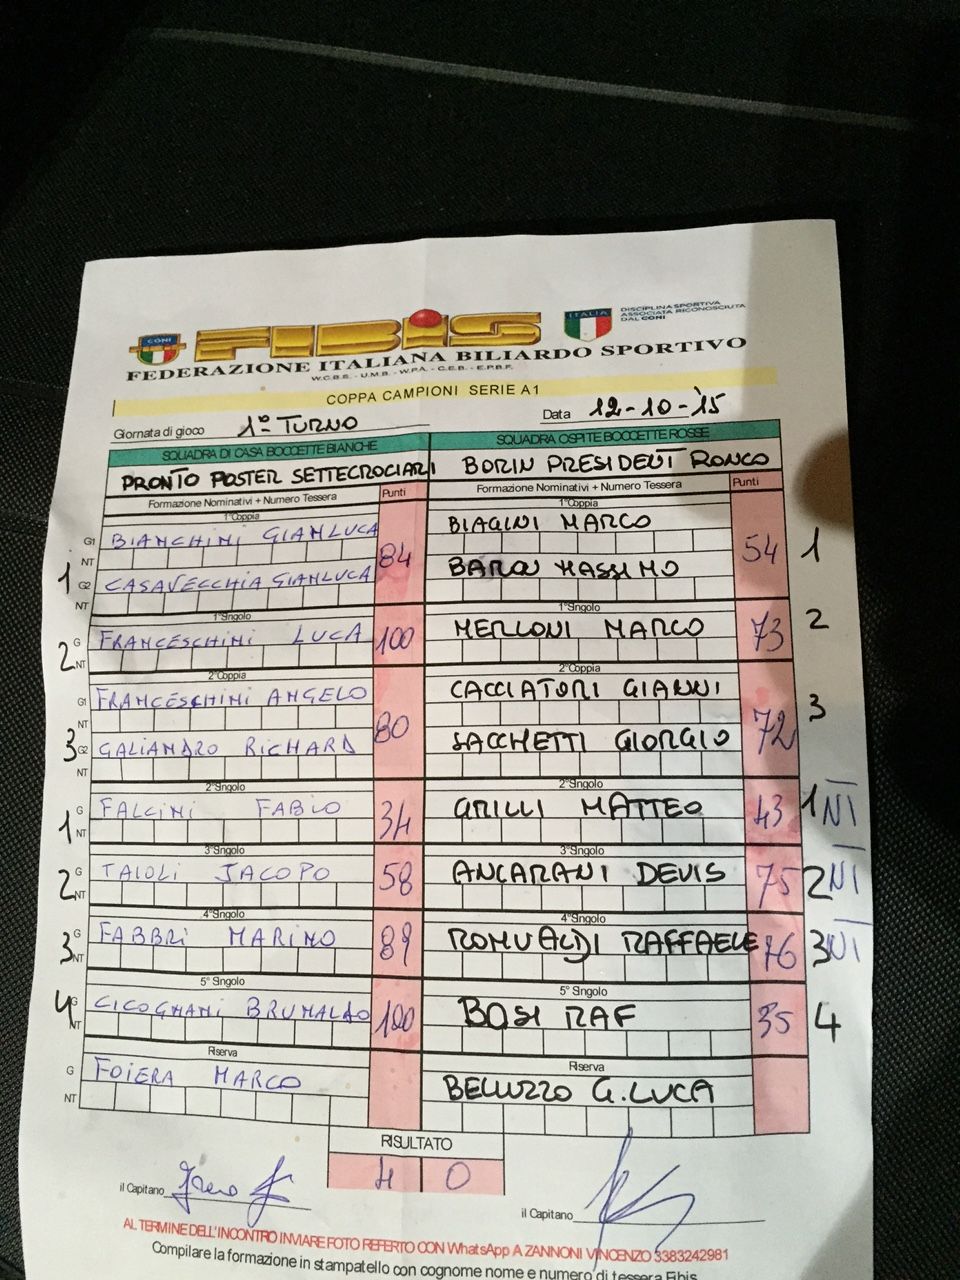 CONI
FIBIS
ITALIA
DISCIPLINA SPORTIVA
ASSOCIATA RICONOSCIUTA
DAL CONI
FEDERAZIONE ITALIANA BILIARDO SPORTIVO
W.C.B.S. - U.M.B. - W.P.A. - C.E.B. - E.P.B.F.
COPPA CAMPIONI SERIE A1
Giornata di gioco 1° TURNO Data 12-10-'15
SQUADRA DI CASA BOCCETTE BIANCHE SQUADRA OSPITE BOCCETTE ROSSE
PRONTO POSTER SETTECROCIARI BORIN PRESIDENT RONCO
Formazione Nominativi + Numero Tessera Punti Formazione Nominativi + Numero Tessera Punti
1°Coppia 1°Coppia
G1 BIANCHINI GIANLUCA 84 BIAGINI MARCO 54 1
NT
1 G2 CASAVECCHIA GIANLUCA MASSIMO
NT
1°Singolo 1°Singolo
2 G FRANCESCHINI LUCA 100 MERLONI MARCO 73 2
NT
2°Coppia 2°Coppia
G1 FRANCESCHINI ANGELO 80 CACCIATORI GIANNI 72 3
NT
3 G2 GALIANDRO RICHARD SACCHETTI GIORGIO
NT
2°Singolo 2°Singolo
1 G FALCINI FABIO 34 GRILLI MATTEO 43 1 NI
NT
3°Singolo 3°Singolo
2 G TAIOLI JACOPO 58 ANCARANI DEVIS 75 2 NI
NT
4°Singolo 4°Singolo
3 G FABBRI MARINO 89 ROMUALDI RAFFAELE 76 3 NI
NT
5° Singolo 5° Singolo
4 G CICOGNANI BRUNALDO 100 BOSI RAF 35 4
NT
Riserva Riserva
G FOIERA MARCO BELUZZO G.LUCA
NT
RISULTATO
4 0
il Capitano il Capitano
AL TERMINE DELL'INCONTRO INVIARE FOTO REFERTO CON WhatsApp A ZANNONI VINCENZO 3383242981
Compilare la formazione in stampatello con cognome nome e numero di tessera Fibis